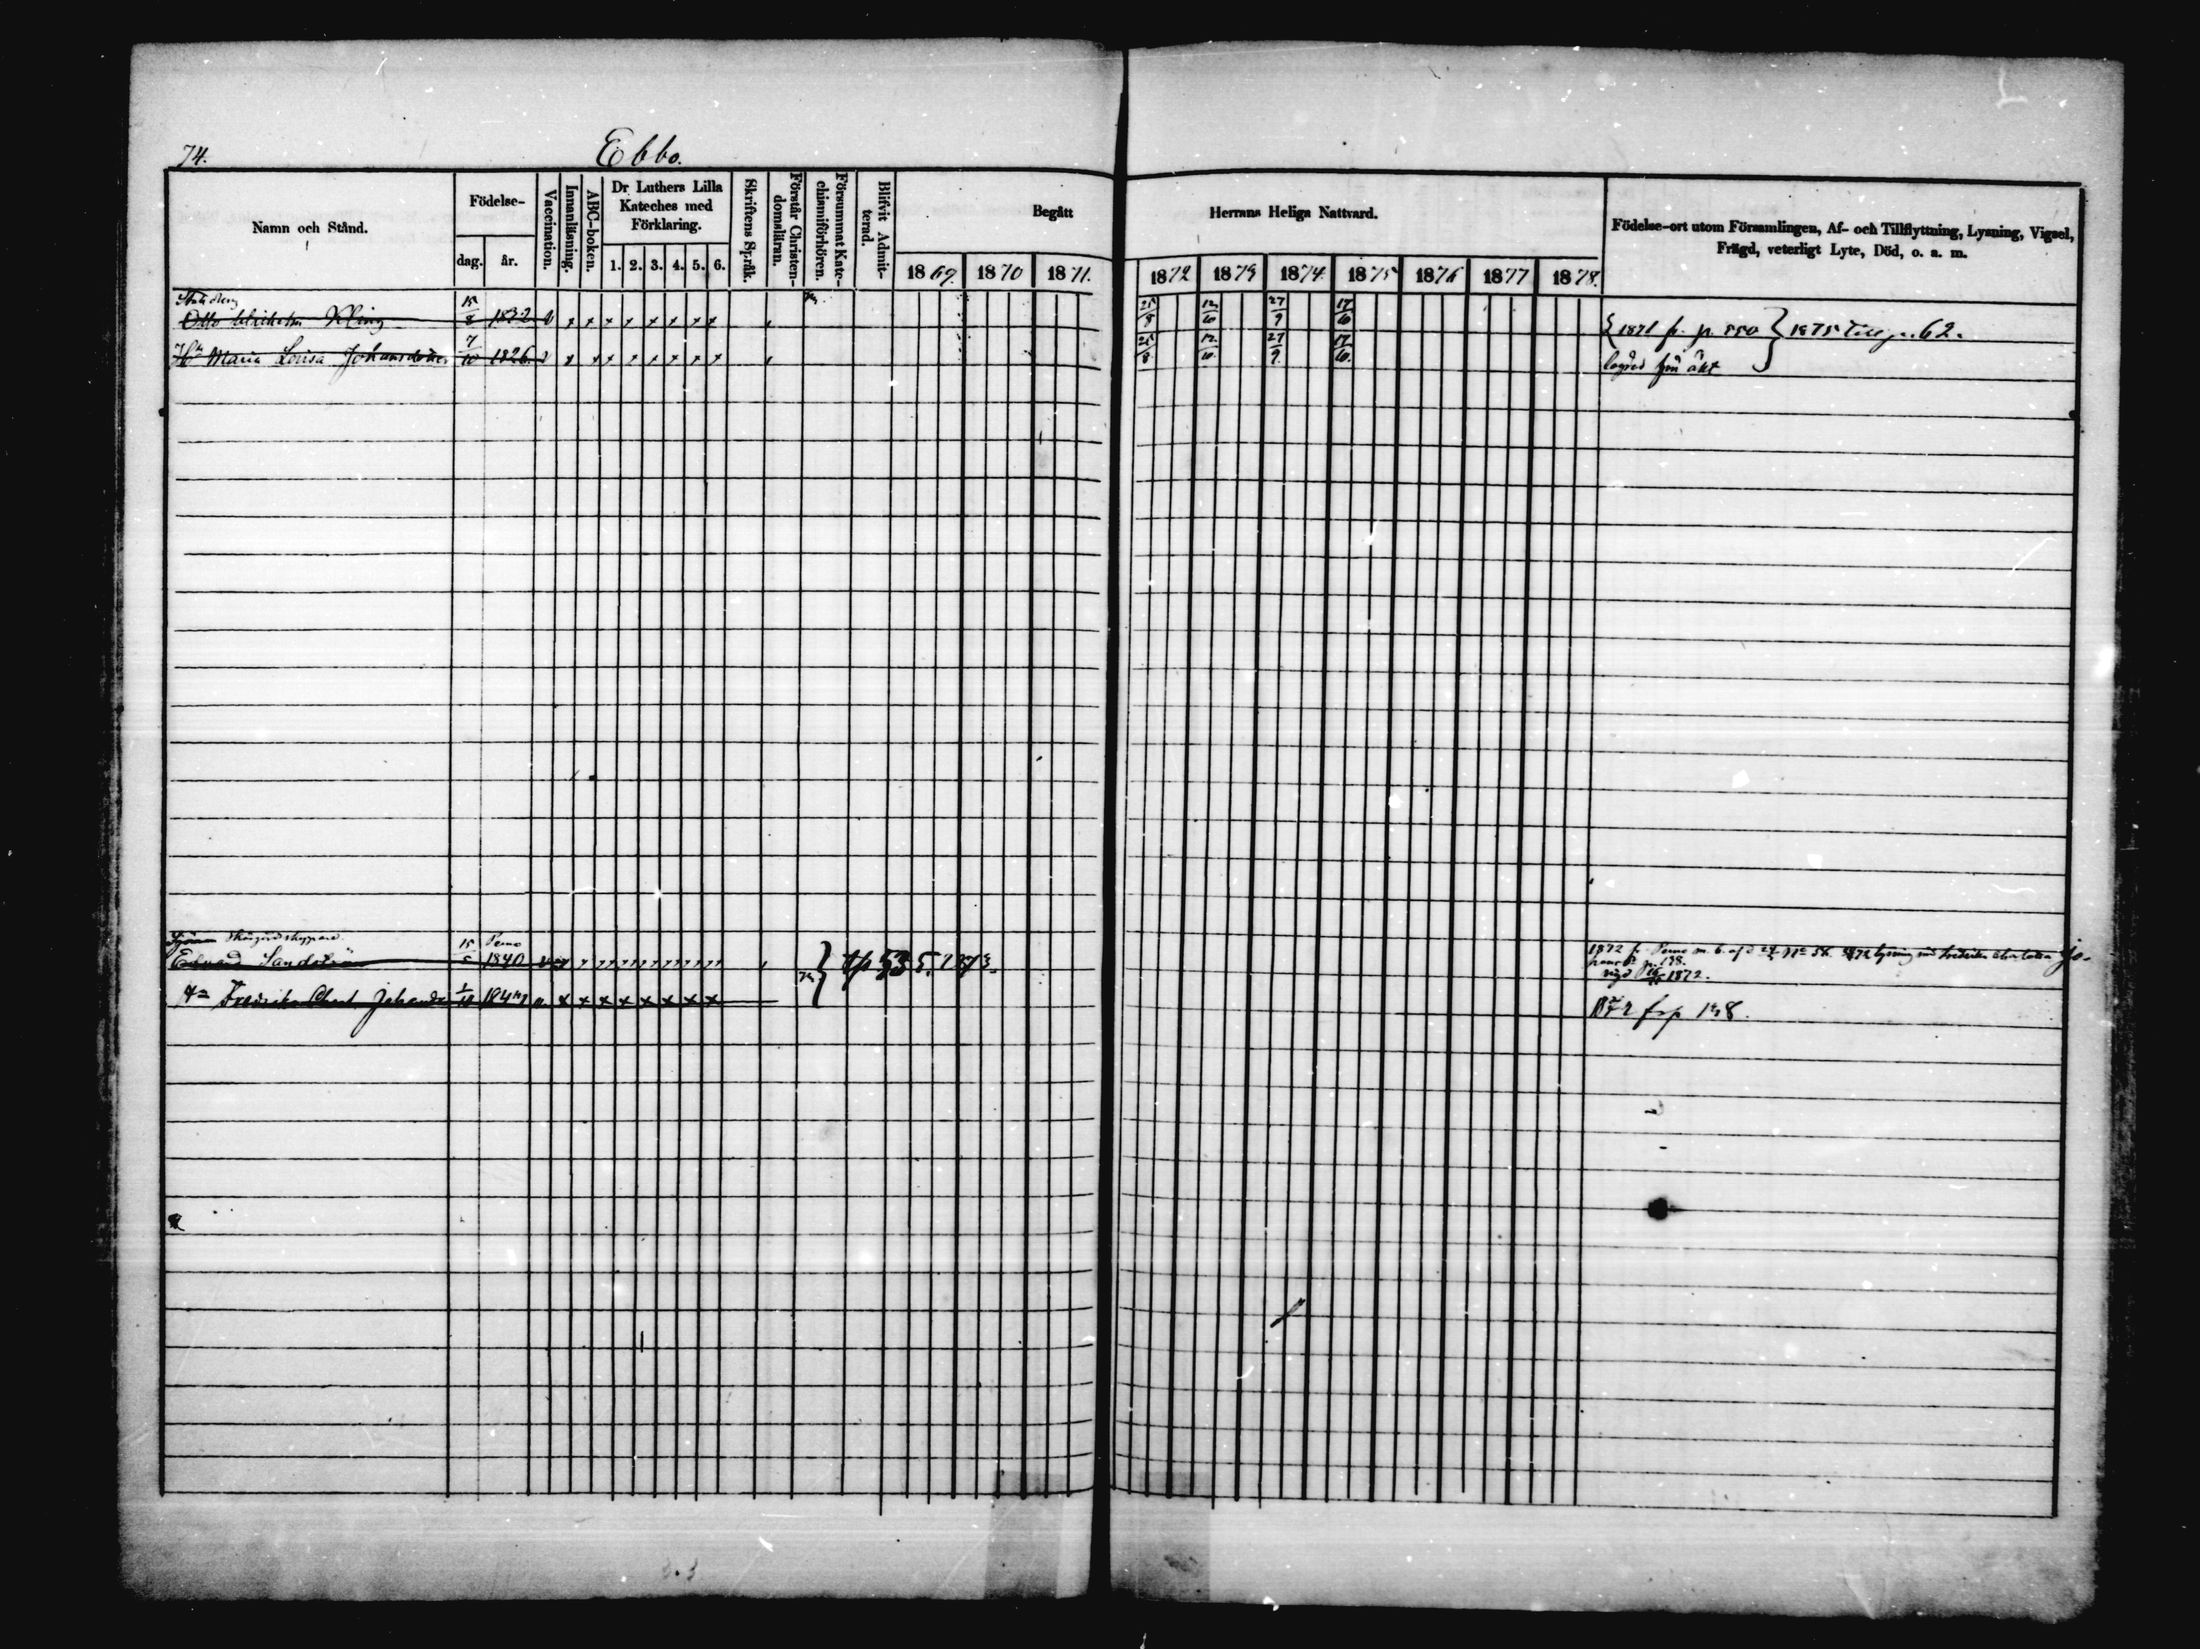 74.
Ebbo.
Namn och Stånd.
Födelse-
dag.
år.
Vaccination.
Innanläsning.
ABC-boken.
Dr Luthers Lilla
Kateches med
Förklaring.
1. 2. 3. 4. 5. 6.
Skriftens Språk.
Förstår Christen-
domsläran.
Försummat Kate-
chismiförhören.
Blifvit Admit-
terad.
Begått
1869. 1870 1871.
Herrans Heliga Nattvard.
1872 1873 1874 1875 1876 1877 1878.
Födelse-ort utom Församlingen, Af- och Tillflyttning, Lysning, Vigsel,
Frägd, veterligt Lyte, Död, o. a. m.
Otto Wilhelm Kling 15/8 1832 v x x x x x x x x 25/8 12/10 27/9 17/10 1871 fr. p. 550 } 1875 till p. 62.
Hu Maria Lovisa Johansdotter 7/10 1826 v x x x x x x x x 25/8 12/10 27/9 17/10
Skärgårdsskeppare Perno
Edvard Sandström 15 1840 1872 fr. Perno m. b. af d. No 58. 1872 lysning med Fredrika Charlotta Jo-
p. 138.
1872.
Fredrika Charl Johansdr 1/10 1872 frp 138.